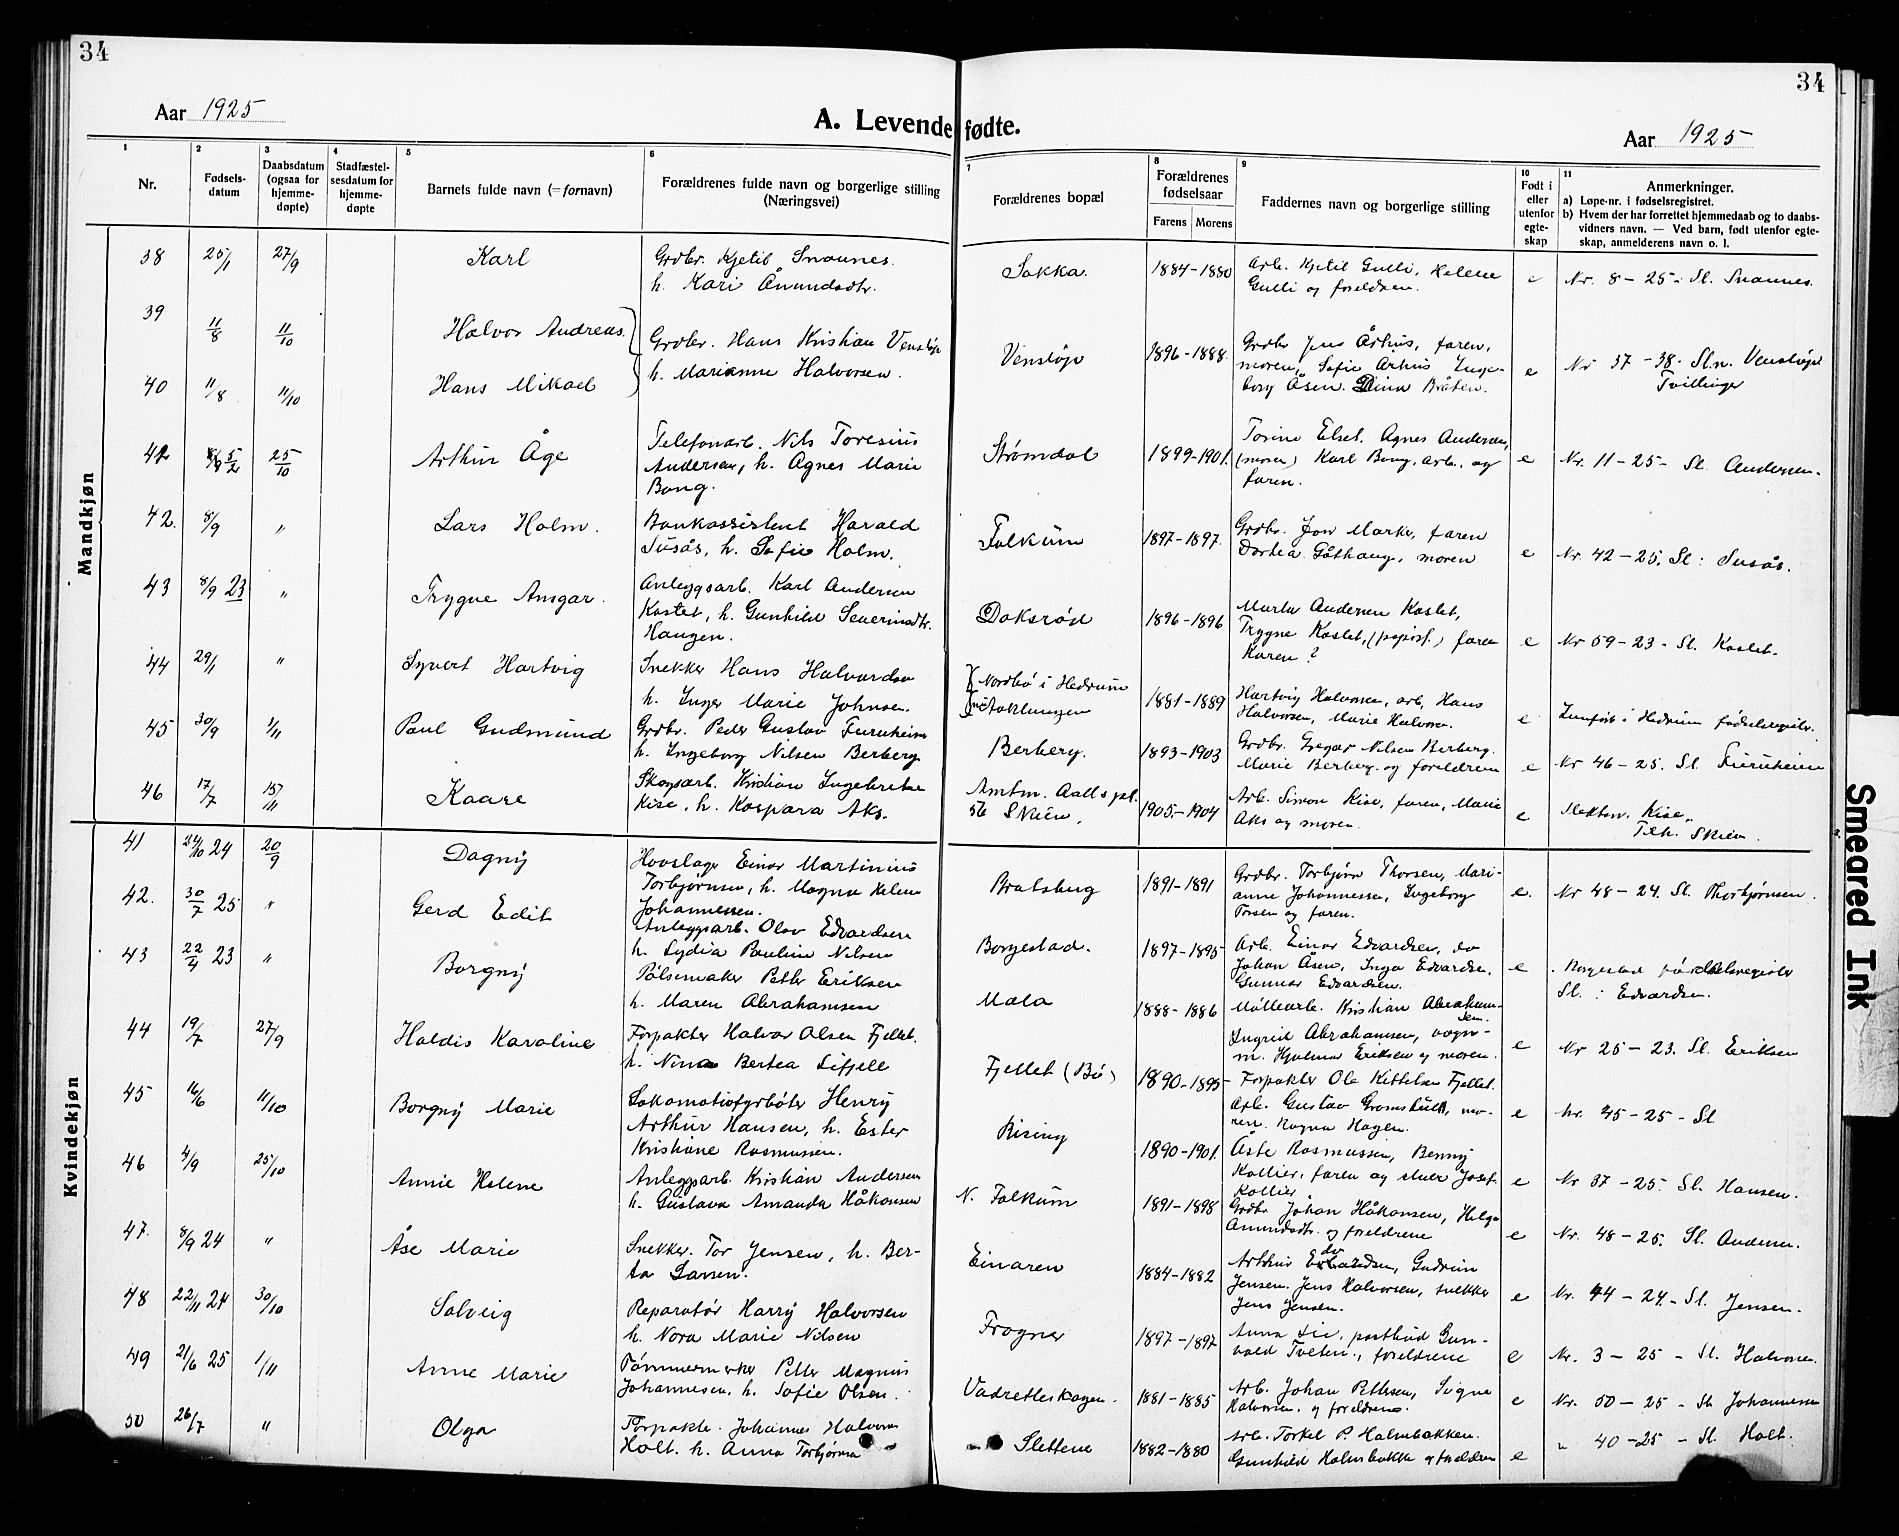 34
34
Aar 1925
A. Levendefødte.
Aar 1925
1
Nr.
2
Fødsels-
datum
3
Daabsdatum
(ogsaa for
hjemme-
døpte)
4
Stadfæstel-
sesdatum for
hjemme-
døpte
5
Barnets fulde navn (= fornavn)
6
Forældrenes fulde navn og borgerlige stilling
(Næringsvei)
7
Forældrenes bopæl
8
Forældrenes
fødselsaar
Farens Morens
9
Faddernes navn og borgerlige stilling
10
Født i
eller
utenfor
egte-
skap
11
Anmerkninger.
a) Løpe-nr. i fødselsregistret.
b) Hvem der har forrettet hjemmedaab og to daabs-
vidners navn. — Ved barn, født utenfor egte-
skap, anmelderens navn o. l.
Mandkjøn
38 25/1 27/9 Karl
Grdbr. Kjetil Snaunes.
h. Kari Åmundsdtr.
Sakka. 1884-1880
Arb. Kjetil Gulli, Helene
Gulli og foreldren.
e Nr. 8-25- Sl. Snaunes.
39 11/8 11/10 Halvor Andreas.
40 11/8 11/10 Hans Mikael
Grdbr. Hans Kristian Venstøp
h. Marianne Halvorsen.
Venstøp 1896-1888.
Grdbr Jens Århus, faren,
moren, Sofie Århus, Inge-
borg Åsen. Dina Bråten.
e Nr 37-38- Sl.n. Venstøp
Tvillinger
41 5/2 25/10 Arthur Åge
Telefonarb. Nils Toresius
Andersen, h. Agnes Marie
Bong.
Strømdal 1899-1901.
Torine Elset. Agnes Andersen,
(moren) Karl Bong, arb., og
faren.
e Nr. 11-25- Sl. Andersen.
42. 8/9 " Lars Holm.
Bankassistent Harald
Susås, h. Sofie Holm.
Falkum 1897-1897.
Grdbr. Jon Marke, faren
Dortea Gåthaug, moren
e Nr 42-25. Sl: Susås.
43 8/9 23 " Trygve Ansgar.
Anleggsarb. Karl Andersen
Kastet, h. Gunhild Severinsdtr.
Haugen.
Doksrød 1896-1896
Marta Andersen Kastet,
Trygve Kastet, (papirf.) faren
Karen?
e Nr 59-23- Sl. Kastet.
44 29/1 " Syvert Hartvig
Snekker Hans Halvardsen
h. Inger Marie Johnsen.
Nordbø i Hedrum
1881-1889
Hartvig Halvorsen, arb, Hans
Halvorsen, Marie Halvorsen.
e Innført i Hedrum fødselsregister.
45 30/9 1/11 Paul Gudmund
Grdbr. Peder Gustav Furuheim
h. Ingeborg Nilsen Berberg
Berberg. 1893-1903
Grdbr. Gregar Nilsen Berberg.
Marie Berberg. og foreldrene
e Nr 46-25. Sl. Furuheim
46 17/7 15/11 Kaare
Skogsarb. Kristian Ingebretsen
Kise, h. Kaspara Aks.
Amtm. Aalls gt.
56 Skien. 1905.-1904
Arb. Simon Kise, faren, Marie
Aks og moren.
e Slektsn. Kise.
Tlh. Skien.
Kvindekjøn
41 24/10 24 20/9 Dagny
Hovslager Einar Martinius
Torbjørnsen, h. Magna Helene
Johannessen.
Bratsberg 1891-1891
Grdbr. Torbjørn Thorsen, Mari-
anne Johannessen, Ingeborg
Torsen og faren.
e. Nr 48-24. Sl. Thorbjørnsen.
42. 30/7 25 " Gerd Edit
Anleggsarb. Olav Edvardsen
h. Lydia Pauline Nilsen
Borgestad. 1897-1895
Arb. Einar Edvardsen, do
Johan Åsen, Inga Edvardsen,
Gunnar Edvardsen.
e . Borgestad fødselsregister
Sl.: Edvardsen.
43 22/4 23 " Borgny
Pølsemaker Petter Eriksen
h. Maren Abrahamsen
Mæla 1888-1886
Møllearb. Kristian Abraham-
sen.
Ingrid Abrahamsen, vogn-
m. Hjalmar Eriksen og moren.
e Nr 25-23. Sl. Eriksen
44 19/7 27/9 Haldis Karoline
Forpakter Halvor Olsen Fjellet.
h. Nina Bertea Lifjell
Fjellet (Bø) 1890-1895-
Forpakter Ole Kittelsen Fjellet.
Arb. Gustav Gromstull, mo-
ren. Ragna Hagen.
e Nr. 45-25- Sl
45 16/6 11/10 Borgny Marie
Lokomotivfyrbøter Henry
Arthur Hansen, h. Ester
Kristiane Rasmussen.
Rising 1890-1901.
Åste Rasmussen, Benny
Kollier, faren og stuer Josef
Kollier
e Nr 37-25. Sl. Hansen.
46 4/9 25/10 Annie Helene
Anleggsarb. Kristian Andersen
h. Gustava Amanda Håkonsen
N. Falkum 1891-1898
Grdbr Johan Håkonsen, Helga
Amundsdtr. og foreldrene
e Nr. 48-25. Sl. Andersen.
47. 8/9 24 " Åse Marie
Snekker. Tor Jensen, h. Ber-
ta Larsen.
Einaren 1884-1882
Arthur Edvardsen, Gudrun
Jensen. Jens Halvorsen, snekker
Jens Jensen.
e Nr. 44-24.- Sl. Jensen.
48 22/11 24 30/10 Solveig
Reparatør Harry Halvorsen
h. Nora Marie Nilsen
Frogner 1897-1897
Anna Lie, postbud Gun-
vald Tveten., foreldrene
e Nr. 3-25- Sl. Halvorsen.
49 21/6 25 1/11 Anne Marie
Tømmermerker Petter Magnus
Johannesen. h. Sofie Olsen.
Vadretteskogen. 1881-1885
Arb. Johan Pettersen, Signe
Halvorsen. og foreldrene.
e Nr. 50-25- Sl Johannesen
50 26/7 " Olga
Forpakter. Johannes Halvorsen
Holt. h. Anna Torbjørnsen
Slettene 1882-1880
Arb. Torkel P. Halmbakken.
Gunhild Halmbakken og foreldren
e " 40-25- Sl. Holt.
Smeared Ink